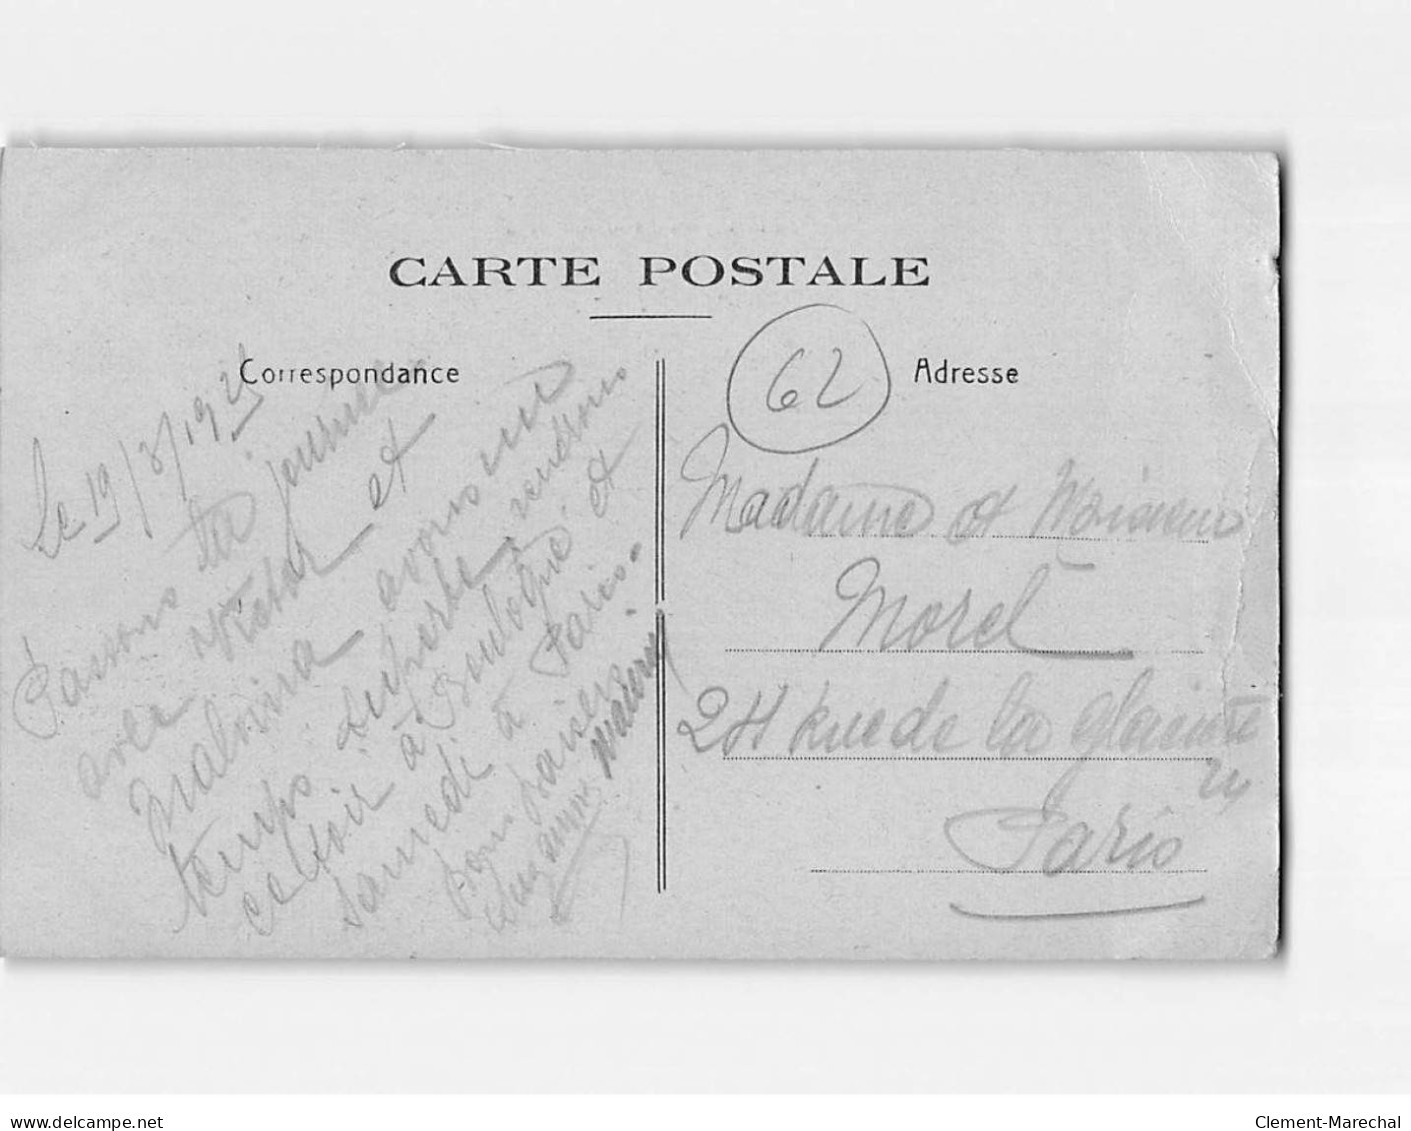 CARTE POSTALE
Correspondance
Adresse
62
Le 19/8/192
Passons la journée
avec Victor et
Malvina avons un
temps superbe rendrons
ce soir à Boulogne et
samedi à Paris.
bon baisers
Suzanne
Madame et Monsieur
Morel
24 Rue de la glacière
Paris
delcampe.net
Clement-Marechal